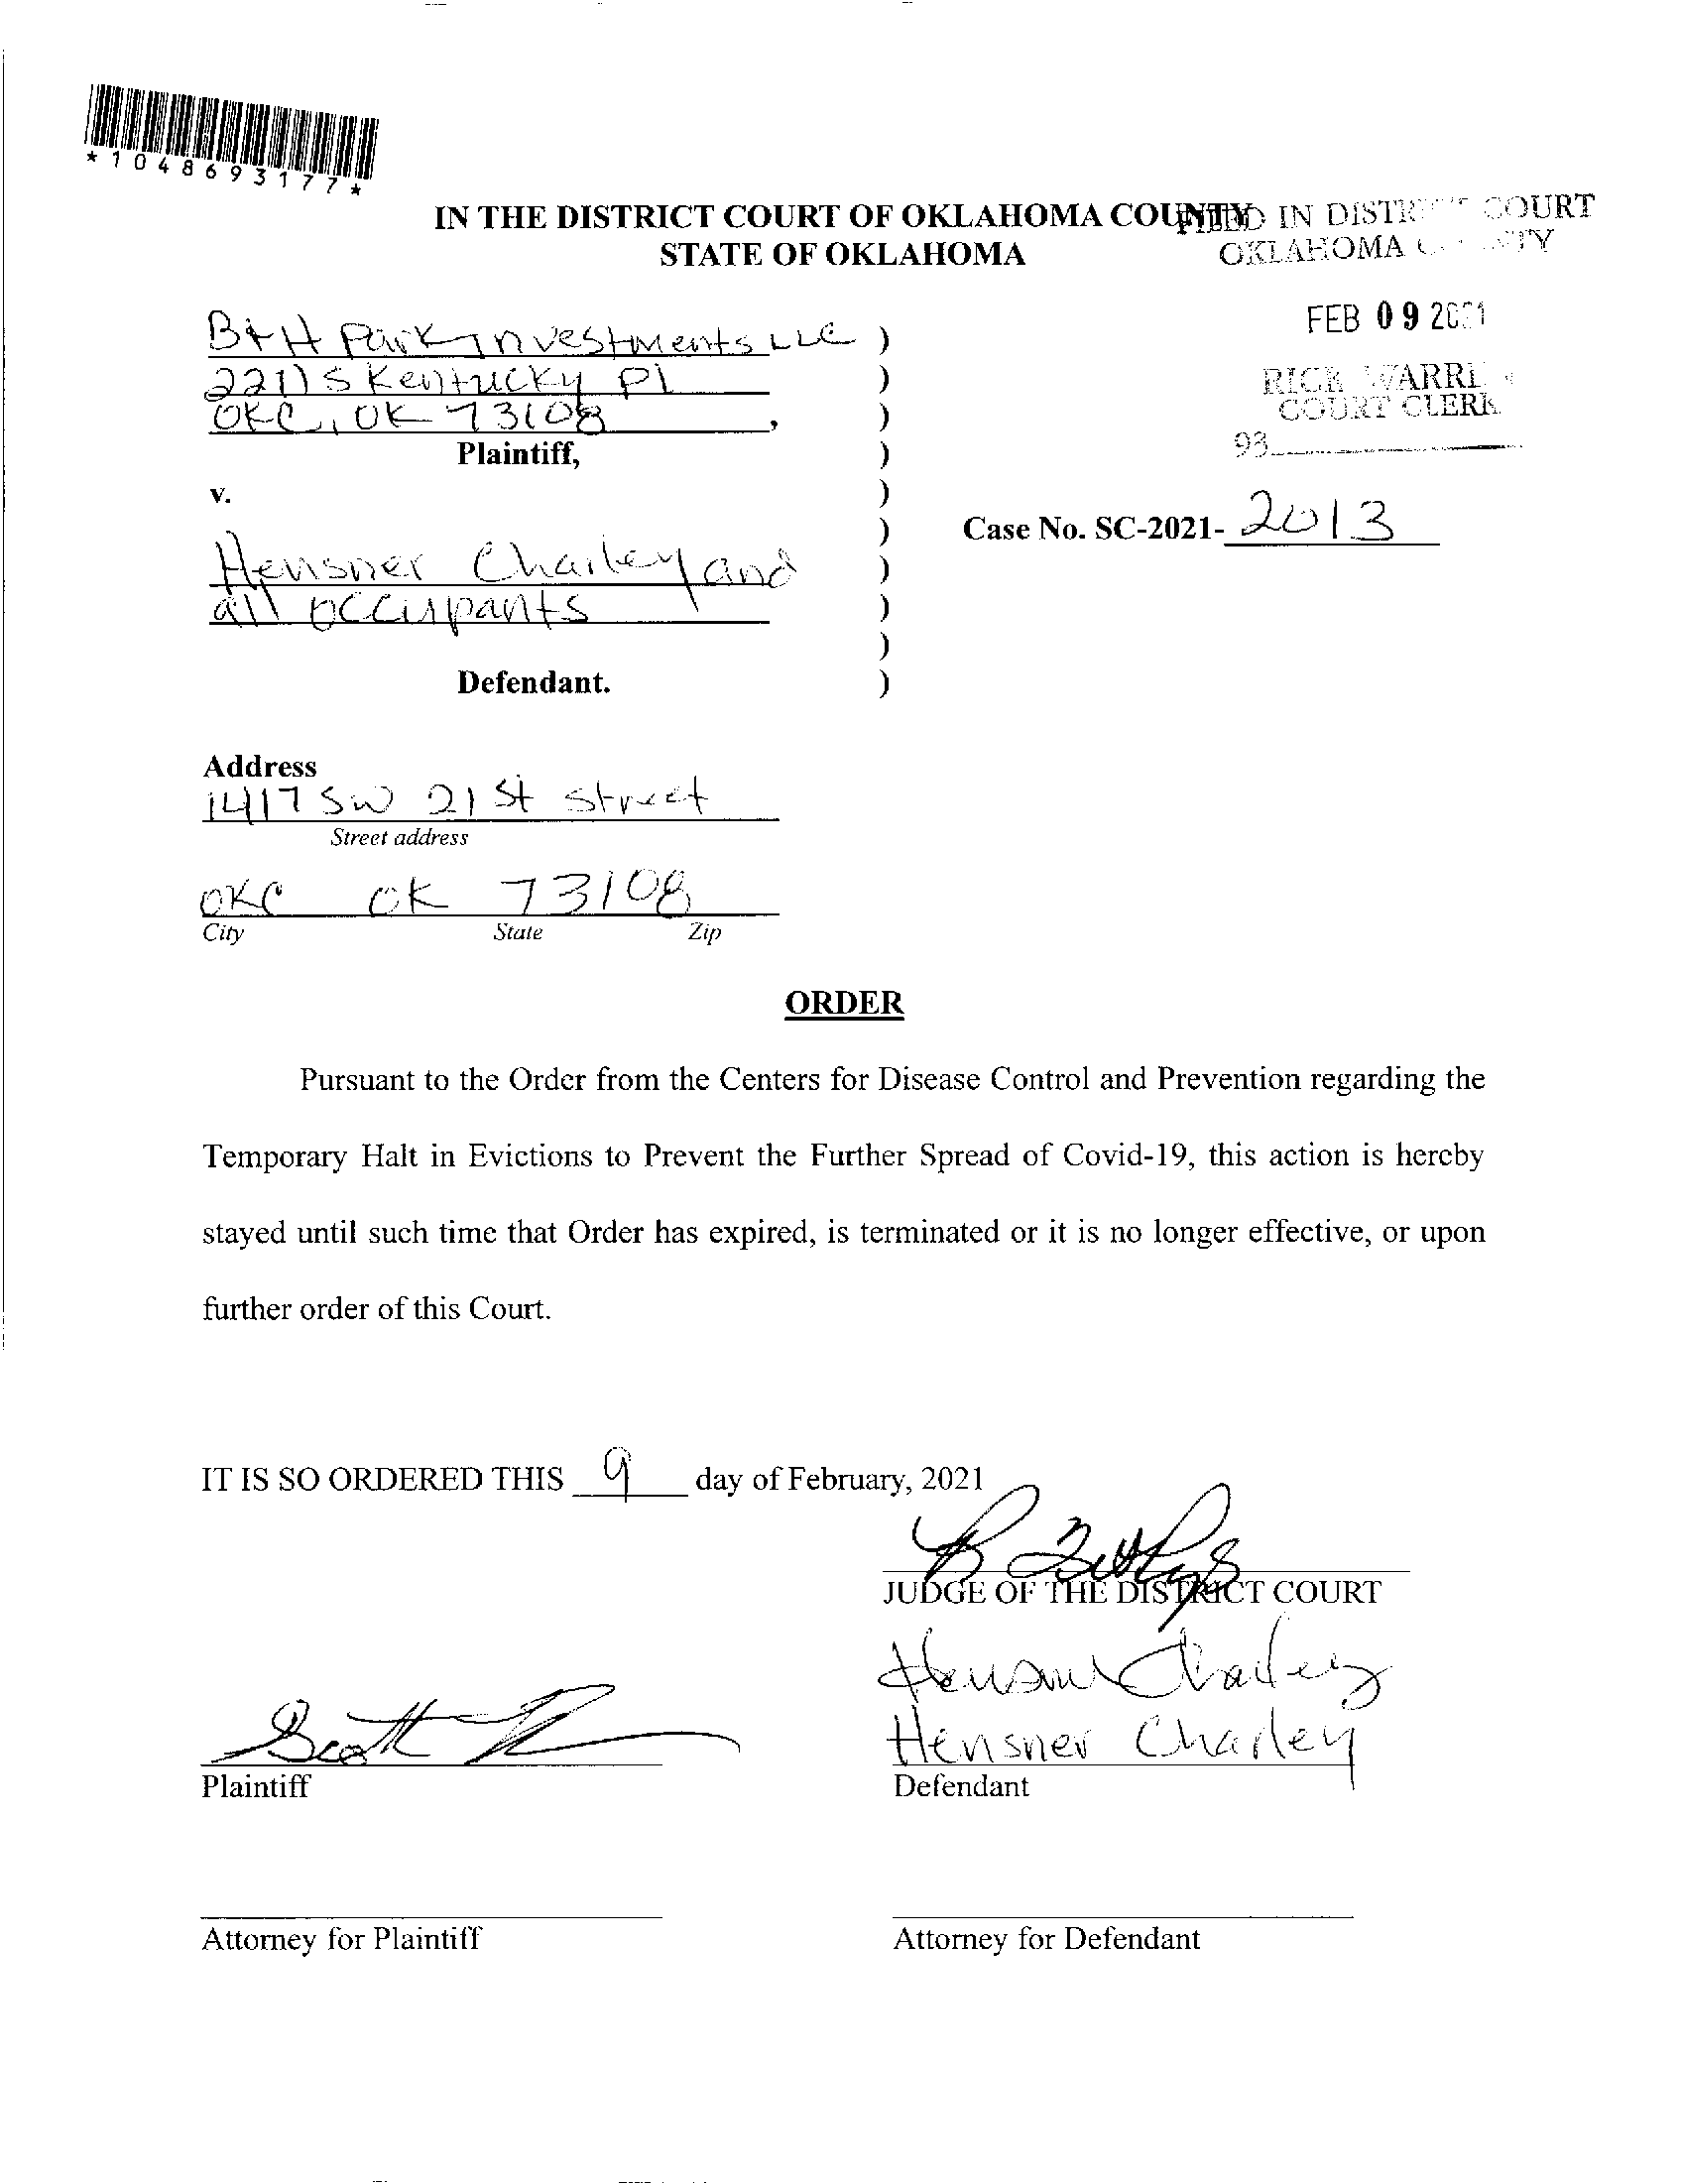 *1048693177*
IN THE DISTRICT COURT OF OKLAHOMA COUNTY
STATE OF OKLAHOMA
FILED IN DISTRICT COURT
OKLAHOMA COUNTY
FEB 09 2021
RICK WARREN
COURT CLERK
93
B+H Park Investments LLC )
2211 S Kentucky Pl )
OKC, OK 73108 , )
Plaintiff, )
v. )
) Case No. SC-2021- 2013
Hensner Charley and )
all occupants )
)
Defendant. )
Address
1417 SW 21st Street
Street address
OKC OK 73108
City State Zip
ORDER
Pursuant to the Order from the Centers for Disease Control and Prevention regarding the
Temporary Halt in Evictions to Prevent the Further Spread of Covid-19, this action is hereby
stayed until such time that Order has expired, is terminated or it is no longer effective, or upon
further order of this Court.
IT IS SO ORDERED THIS 9 day of February, 2021
JUDGE OF THE DISTRICT COURT
Hensner Charley
Scott
Hensner Charley
Plaintiff Defendant
Attorney for Plaintiff Attorney for Defendant